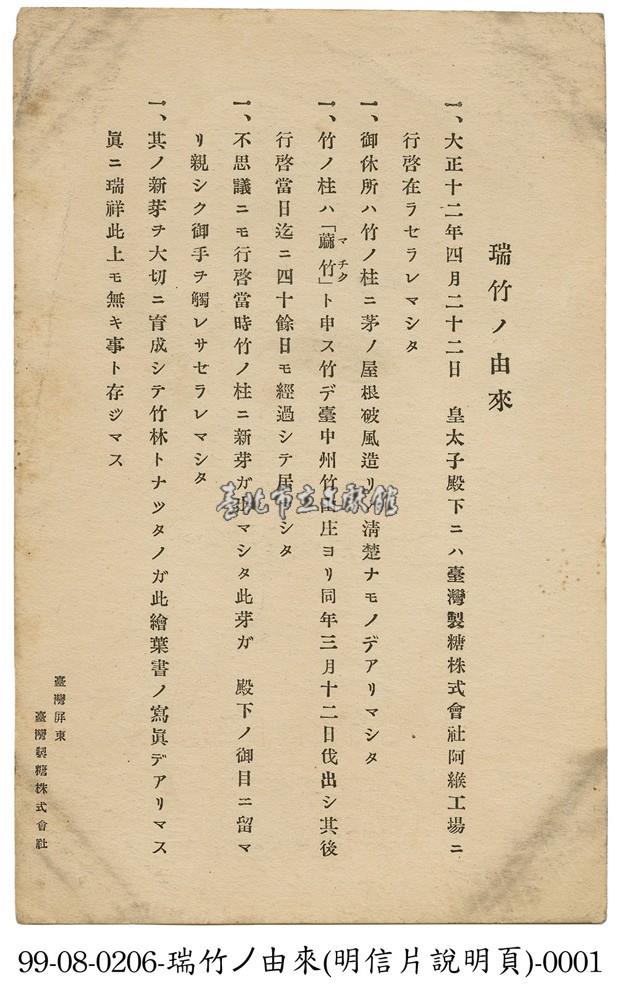 瑞竹ノ由來
一、大正十二年四月二十二日　皇太子殿下ニハ臺灣製糖株式會社阿緱工場ニ
行啓在ラセラレマシタ
一、御休所ハ竹ノ柱ニ茅ノ屋根破風造リ清楚ナモノデアリマシタ
マチク
一、竹ノ柱ハ「蔴竹」ト申ス竹デ臺中州竹山庄ヨリ同年三月十二日伐出シ其後
行啓當日迄ニ四十餘日モ經過シテ居マシタ
一、不思議ニモ行啓當時竹ノ柱ニ新芽ガ出マシタ此芽ガ　殿下ノ御目ニ留マ
リ親シク御手ヲ觸レサセラレマシタ
一、其ノ新芽ヲ大切ニ育成シテ竹林トナツタノガ此繪葉書ノ寫眞デアリマス
眞ニ瑞祥此上モ無キ事ト存ジマス
臺灣屏東
臺灣製糖株式會社
臺北市立文獻館
99-08-0206-瑞竹ノ由來(明信片說明頁)-0001